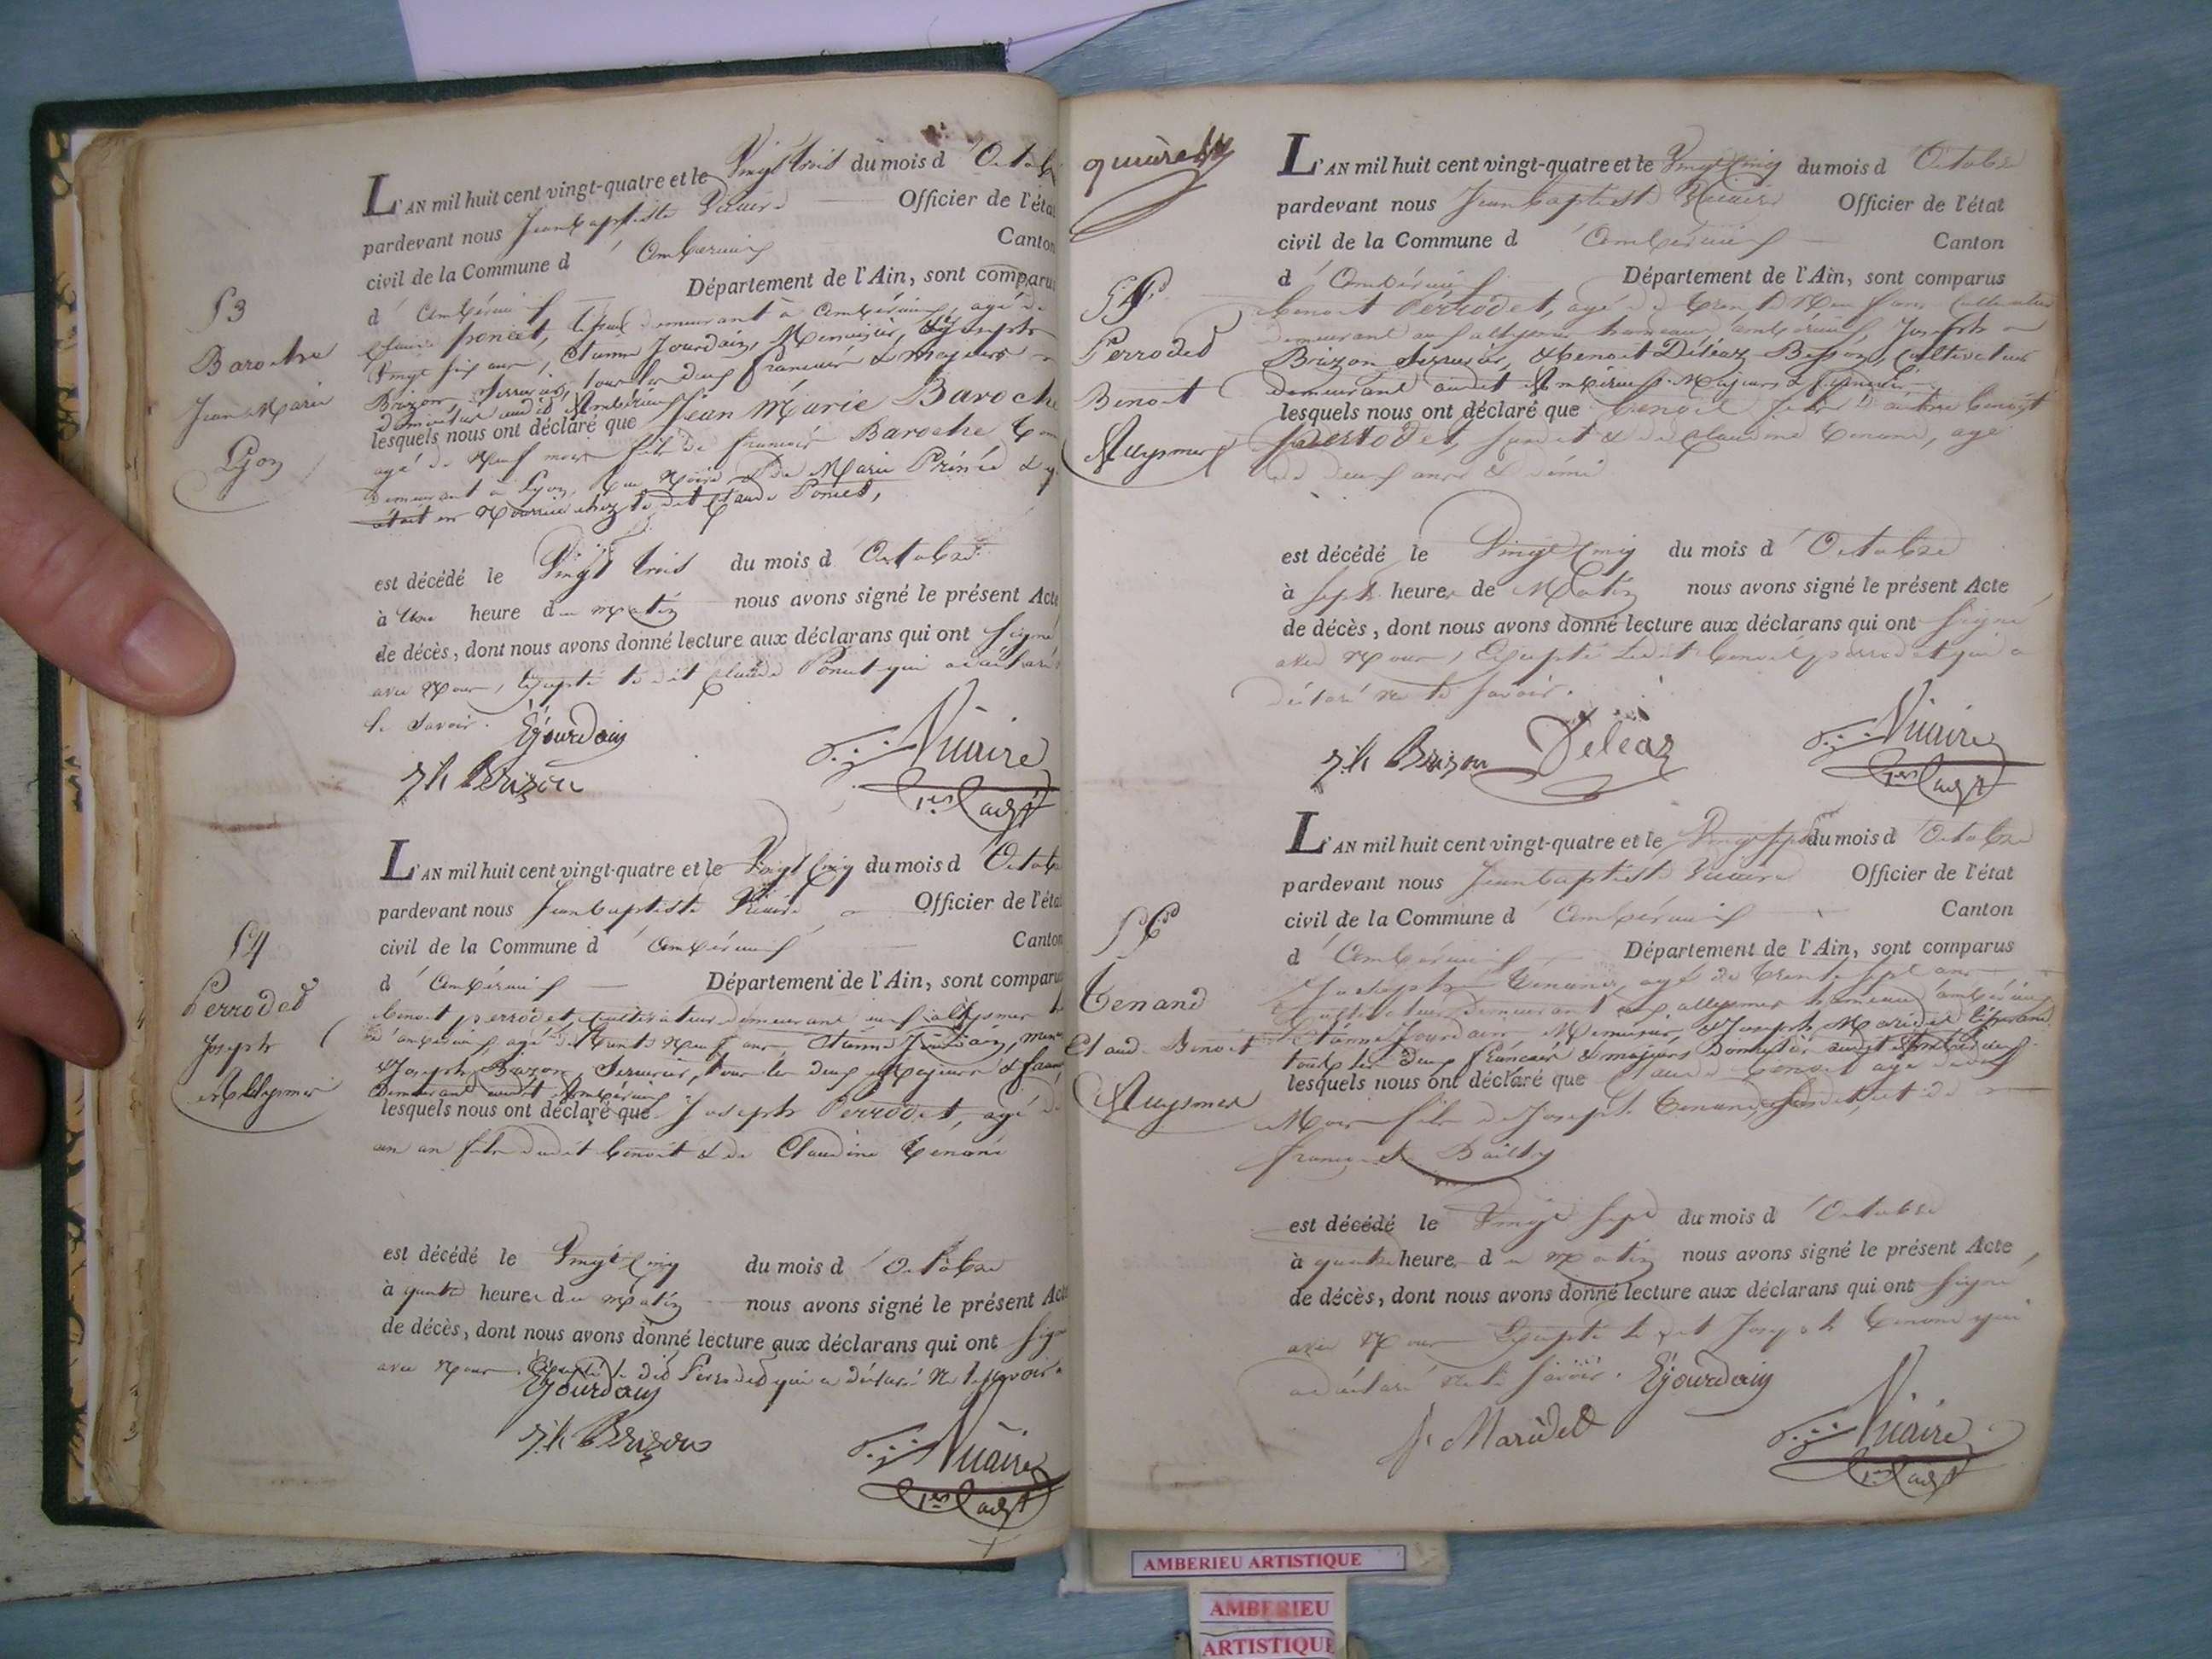 53
Baroche
Jean Marie
Lyon
L'AN mil huit cent vingt-quatre et le Vingt trois du mois d'Octob
pardevant nous Jean baptiste Vicaire Officier de l'état
civil de la Commune d'ambérieux Canton
d'ambérieux Département de l'Ain, sont comparus
Claude poncet, demeurant à ambérieux, agé de
Vingt six ans, Etienne Jourdain, Menuisier, & Joseph
Brizon, Serrurier, tous les deux francais & Majeurs
domiciliés audit Ambérieux
lesquels nous ont déclaré que Jean Marie Baroche
agé de Neuf mois fils de francois Baroche
demeurant à Lyon, Rue Noire, & de Marie
était en Nourrice chez le dit Claude Poncet,
est décédé le Vingt trois du mois d'Octobre
à Une heure du matin nous avons signé le présent Acte
de décès, dont nous avons donné lecture aux déclarans qui ont signé
avec Nous, Excepté le dit Claude Poncet qui a déclaré
le savoir. Ejourdain
Jh Brizon
Vicaire
54
Perrodet
Joseph
L'AN mil huit cent vingt-quatre et le Vingt Cinq du mois d'Octob
pardevant nous Jean baptiste Vicaire Officier de l'état
civil de la Commune d'ambérieux Canton
d'ambérieux Département de l'Ain, sont comparus
benoit perrodet, cultivateur demeurant aux allymes
d'ambérieux, agé de trente Neuf ans, Etienne Jourdain,
& Joseph Brizon, Serrurier, tous les deux Majeurs &
demeurant audit Ambérieux
lesquels nous ont déclaré que Joseph Perrodet, agé de
un an fils dudit benoit & de Claudine tenand
est décédé le Vingt Cinq du mois d'Octobre
à quatre heures du matin nous avons signé le présent Acte
de décès, dont nous avons donné lecture aux déclarans qui ont signé
avec Nous, Excepté le dit Perrodet qui a déclaré Ne le savoir
Ejourdain
Jh Brizon
Vicaire
55
Perrodet
Benoit
L'AN mil huit cent vingt-quatre et le Vingt Cinq du mois d'Octobre
pardevant nous Jean baptiste Vicaire Officier de l'état
civil de la Commune d'ambérieux Canton
d'ambérieux Département de l'Ain, sont comparus
benoit Perrodet, agé de trente Neuf ans Cultivateur
demeurant aux allymes hameau d'ambérieux, Joseph
Brizon Serrurier, & benoit Déléaz Cultivateur
demeurant audit Ambérieux Majeurs &
lesquels nous ont déclaré que benoit fils d'autre benoit
perrodet, susdit & de claudine tenand, agé
de deux ans & demi
est décédé le Vingt Cinq du mois d'Octobre
à sept heures de Matin nous avons signé le présent Acte
de décès, dont nous avons donné lecture aux déclarans qui ont signé
avec Nous, Excepté Ledit benoit perrodet qui a
déclaré ne le savoir.
Jh Brizon Déléaz
Vicaire
56
tenand
Claude Benoit
L'AN mil huit cent vingt-quatre et le Vingt sept du mois d'Octobre
pardevant nous Jean baptiste Vicaire Officier de l'état
civil de la Commune d'ambérieux Canton
d'ambérieux Département de l'Ain, sont comparus
Joseph tenand, agé de trente sept ans
Cultivateur demeurant aux allymes hameau d'ambérieux
Etienne Jourdain Menuisier, & Joseph Maridet
tous les deux francais & majeurs domiciliés audit Ambérieux
lesquels nous ont déclaré que Claude benoit agé de
Mois fils de Joseph tenand susdit, et de
francoise Bailly
est décédé le Vingt sept du mois d'Octobre
à quatre heures du matin nous avons signé le présent Acte
de décès, dont nous avons donné lecture aux déclarans qui ont signé
avec Nous Excepté le dit Joseph tenand qui
a déclaré ne le savoir. Ejourdain
J. Maridet
Vicaire
AMBERIEU ARTISTIQUE
AMBERIEU
ARTISTIQUE